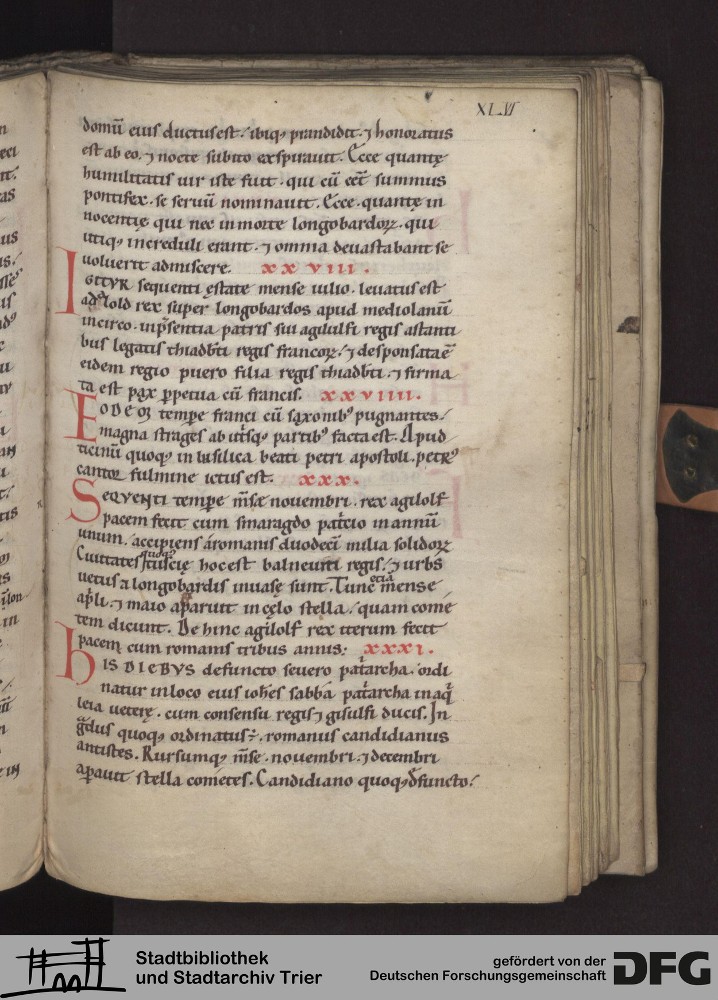 XLVI
domū eius ductus est. ibiq; prandidit. ⁊ honoratus
est ab eo. ⁊ nocte subito exspirauit. Ecce quantę
humilitatis uir iste fuit. qui cū eēt summus
pontifex. se seruū nominauit. Ecce. quantę in
nocentię qui nec in morte longobardoꝝ. qui
utiq; increduli erant. ⁊ omnia deuastabant se
uoluerit admiscere. xxviii.
IGITVR sequenti ęstate mense iulio. leuatus est
adꝰlold rex super longobardos apud mediolanū
in circo. inp̄sentia patris sui agilulfi regis astanti
bus legatis thiadb̄ti regis francoꝝ. ⁊ desponsata ē
eidem regio puero filia regis thiadb̄ti. ⁊ firma
ta est pax ꝑpetua cū francis. xxviiii.
EODEꝳ temꝑe franci cū saxonibꝰ pugnantes.
magna strages ab utisq; partibꝰ facta est. Apud
ticinū quoq; in basilica beati petri apostoli. petrꝰ
cantor fulmine ictus est. xxx.
SEQVENTI temꝑe m̄se nouembri. rex agilolf
pacem fecit cum smaragdo pat̄cio in annū
unum. accipiens a romanis duodecī milia solidoꝝ
Ciuitates quoq; tuscię hoc est balneum regis. ⁊ urbs
uetus a longobardis inuasę sunt. Tunc etiā mense
ap̄li. ⁊ maio apparuit in cęlo stella. quam come
tem dicunt. Dehinc agilolf rex iterum fecit
pacem cum romanis tribus annis. xxxi.
hIS DIEBVS defuncto seuero pat̄archa. ordi
natur in loco eius ioh̄es abba pat̄archa in aq̄
leia uetere. cum consensu regis ⁊ gisulfi ducis. In
g̈dus quoq; ordinatus ÷. romanus candidianus
antistes. Rursumq; m̄se nouembri. ⁊ decembri
aꝑauit stella cometes. Candidiano quoq; defuncto.
Stadtbibliothek
und Stadtarchiv Trier
gefördert von der
Deutschen Forschungsgemeinschaft
DFG